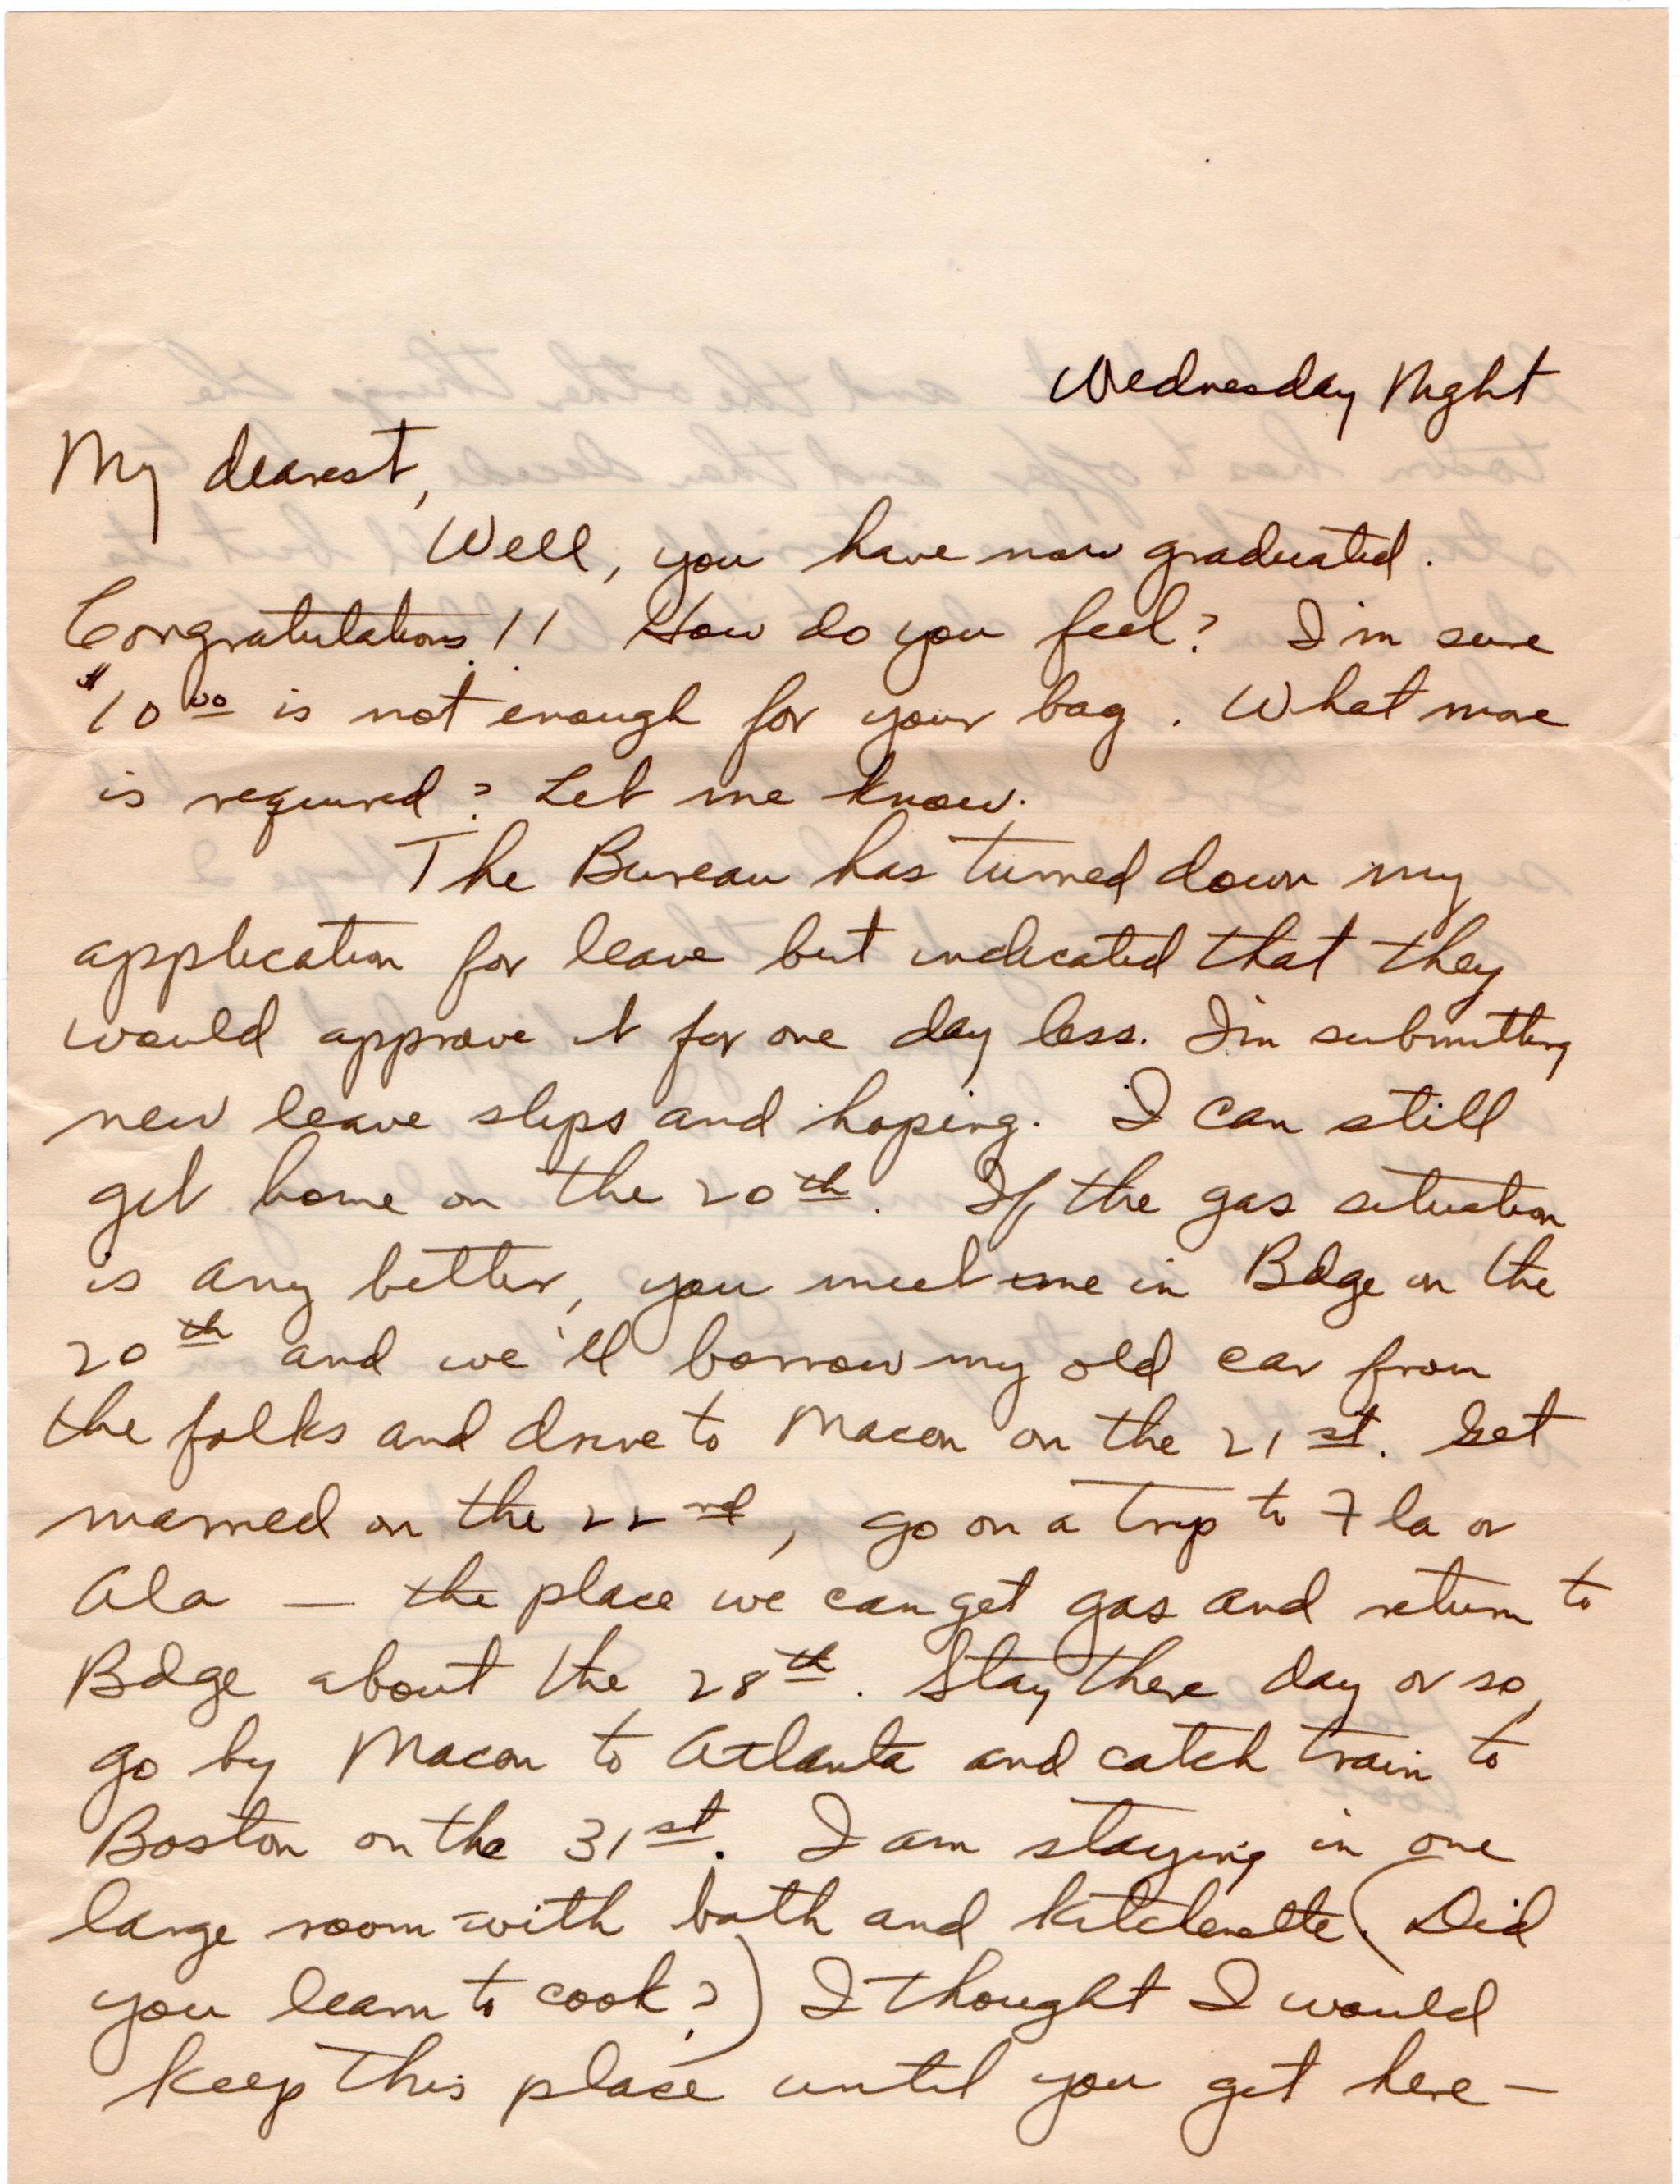 Wednesday Night
My dearest,
Well, you have now graduated.
Congratulations!! How do you feel? I'm sure
$10.00 is not enough for your bag. What more
is required? Let me know.
The Bureau has turned down my
application for leave but indicated that they
would approve it for one day less. I'm submitting
new leave slips and hoping. I can still
get home on the 20th. If the gas situation
is any better, you meet me in Bdge on the
20th and we'll borrow my old car from
the folks and drive to Macon on the 21st. Get
married on the 22nd, go on a trip to Fla or
Ala — the place we can get gas and return to
Bdge about the 28th. Stay there day or so,
go by Macon to Atlanta and catch train to
Boston on the 31st. I am staying in one
large room with bath and kitchenette. (Did
you learn to cook?) I thought I would
keep this place until you get here —